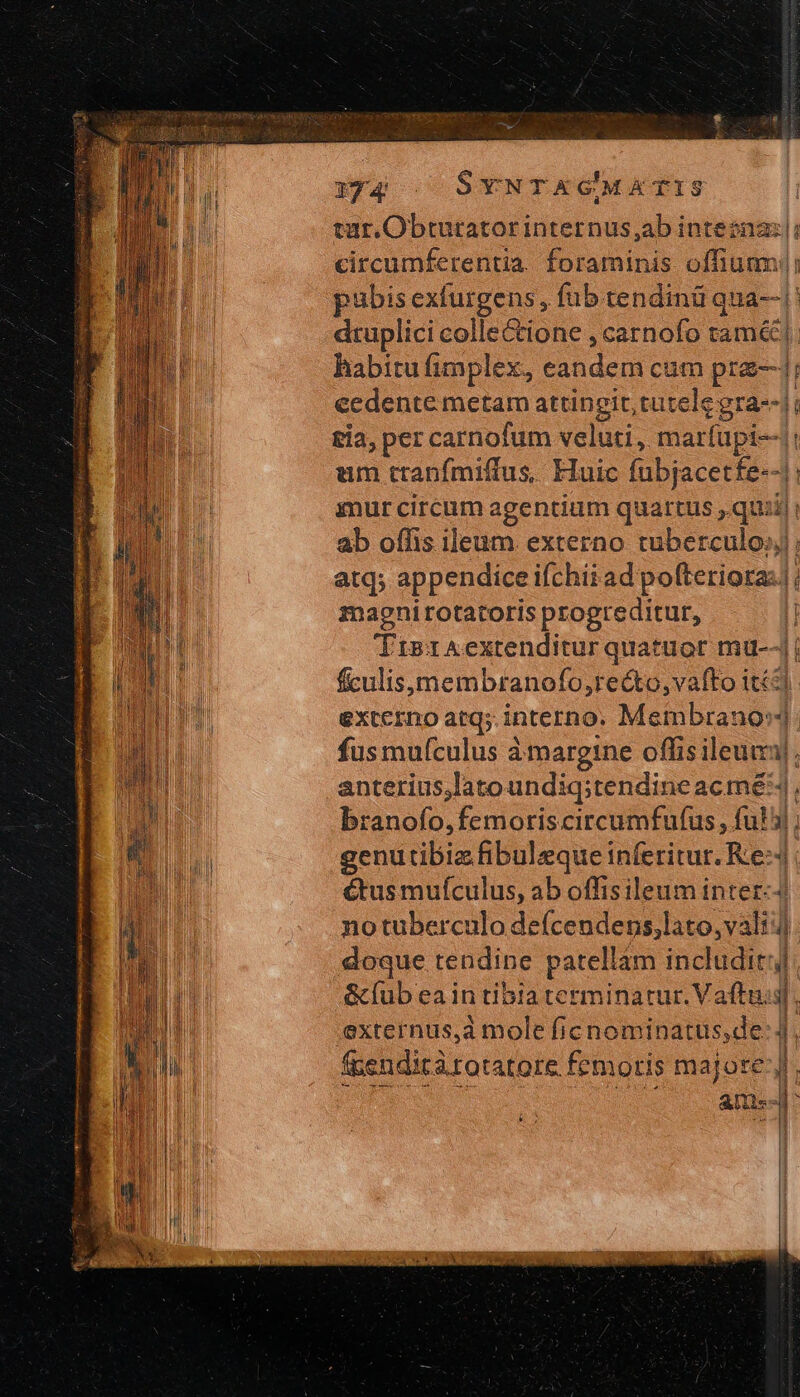 174 SYNTAGMATIS
tur. Obturator internus, ab interna
circumferentia foraminis ossium
pubis exſurgens, ſub tendinū qua-
druplici collectione, carnoſo tamē
habitu ſimplex, eandem cum præ-
cedente metam attingit, tutelę gra-
tia, per carnoſum veluti, marſupi-
um tranſmiſſus. Huic ſubjacet fe-
mur circum agentium quartus, qui
ab oſſis ileum externo tuberculo,
atq; appendice iſchii ad poſteriora
magni rotatoris progreditur,
TIBIA extenditur quatuor mu-
ſculis, membranoſo, recto, vaſto itē
externo atq; interno. Membrano-
ſus muſculus à margine oſſis ileum
anterius, lato undiq; tendine ac mē-
branoſo, femoris circumfuſus, ſub
genu tibiæ fibulæque inſeritur. Re-
ctus muſculus, ab oſſis ileum inter-
no tuberculo deſcendens, lato, vali-
doque tendine patellam includit,
& ſub ea in tibia terminatur. Vaſtus
externus, à mole ſic nominatus, de-
ſcendit à rotatore femoris majore
am-